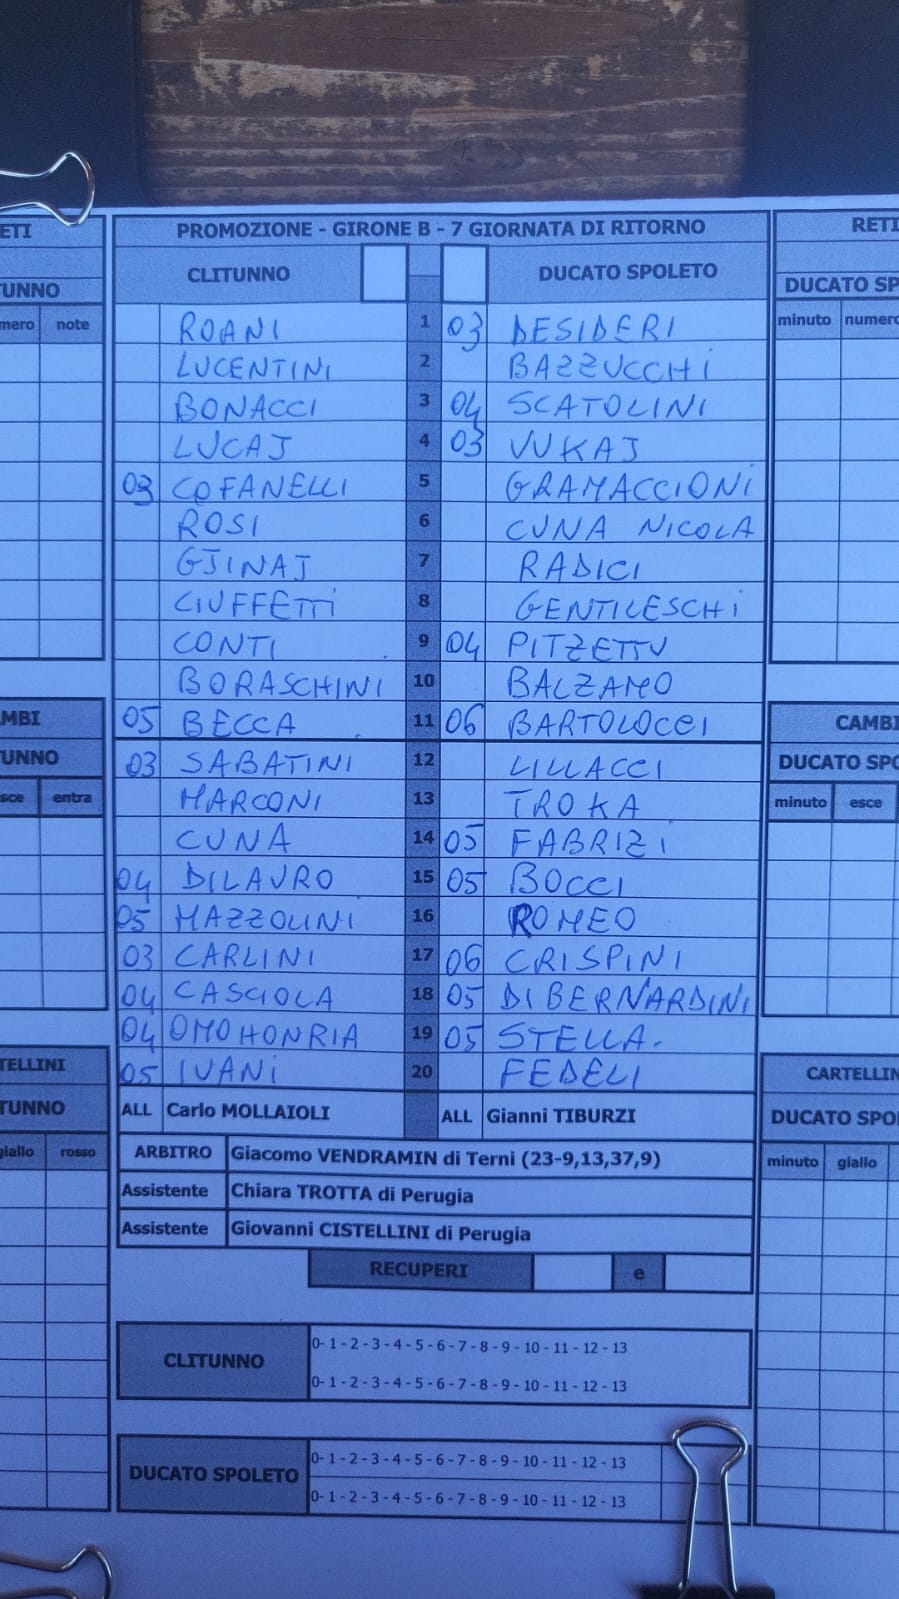 PROMOZIONE - GIRONE B - 7 GIORNATA DI RITORNO
CLITUNNO DUCATO SPOLETO
ROANI 1 03 DESIDERI
LUCENTINI 2 BAZZUCCHI
BONACCI 3 04 SCATOLINI
LUCAJ 4 03 VUKAJ
03 COFANELLI 5 GRAMACCIONI
ROSI 6 CUNA NICOLA
GJINAJ 7 RADICI
CIUFFETTI 8 GENTILESCHI
CONTI 9 04 PITZETTU
BORASCHINI 10 BALZAMO
05 BECCA 11 06 BARTOLOCCI
03 SABATINI 12 LILLACCI
MARCONI 13 TROKA
CUNA 14 05 FABRIZI
04 DILAURO 15 05 BOCCI
05 MAZZOLINI 16 ROMEO
03 CARLINI 17 06 CRISPINI
04 CASCIOLA 18 05 DI BERNARDINI
04 OMOHONRIA 19 05 STELLA.
05 IVANI 20 FEDELI
ALL Carlo MOLLAIOLI ALL Gianni TIBURZI
ARBITRO Giacomo VENDRAMIN di Terni (23-9,13,37,9)
Assistente Chiara TROTTA di Perugia
Assistente Giovanni CISTELLINI di Perugia
RECUPERI e
CLITUNNO
0- 1 - 2 - 3 - 4 - 5 - 6 - 7 - 8 - 9 - 10 - 11 - 12 - 13
0- 1 - 2 - 3 - 4 - 5 - 6 - 7 - 8 - 9 - 10 - 11 - 12 - 13
DUCATO SPOLETO
0- 1 - 2 - 3 - 4 - 5 - 6 - 7 - 8 - 9 - 10 - 11 - 12 - 13
0- 1 - 2 - 3 - 4 - 5 - 6 - 7 - 8 - 9 - 10 - 11 - 12 - 13
ETI
UNNO
mero note
MBI
UNNO
sce entra
TELLINI
TUNNO
giallo rosso
RETI
DUCATO SP
minuto numero
CAMBI
DUCATO SPO
minuto esce
CARTELLIN
DUCATO SPOL
minuto giallo